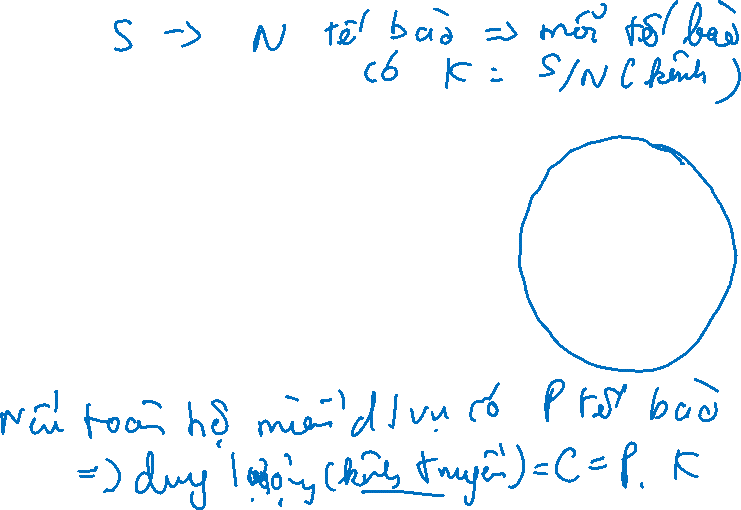 S → N tế bào => mỗi tế bào
có K = S/N (kênh)
Nếu toàn bộ miền d/vụ có P tế bào
=> dung lượng (kênh truyền) = C = P. K